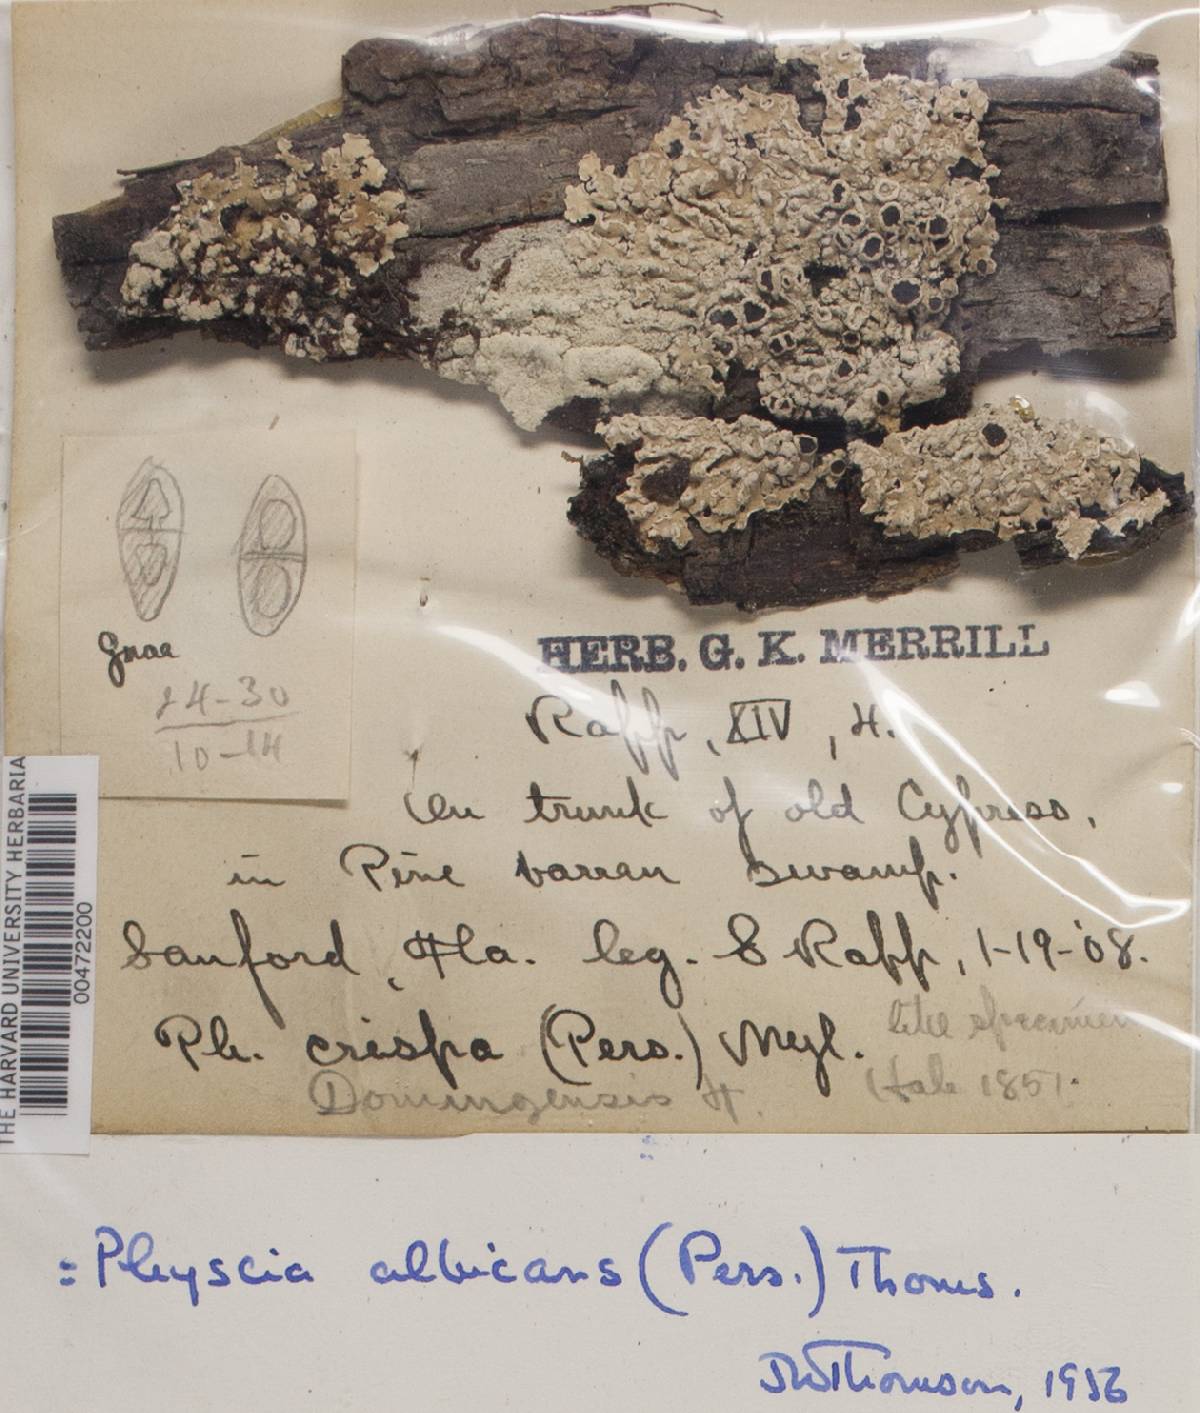 Gnaa
24-30
10-14
HERB. G. K. MERRILL
Rapp, XIV, 4.
On trunk of old Cypress,
in Pine barren swamp.
Sanford, Fla. leg. S Rapp, 1-19-'08.
Ph. crispa (Pers.) Nyl.
like specimen
Domingensis H.
Hale 1851.
THE HARVARD UNIVERSITY HERBARIA
00472200
=Physcia albicans (Pers.) Thoms.
JWThomson, 1956